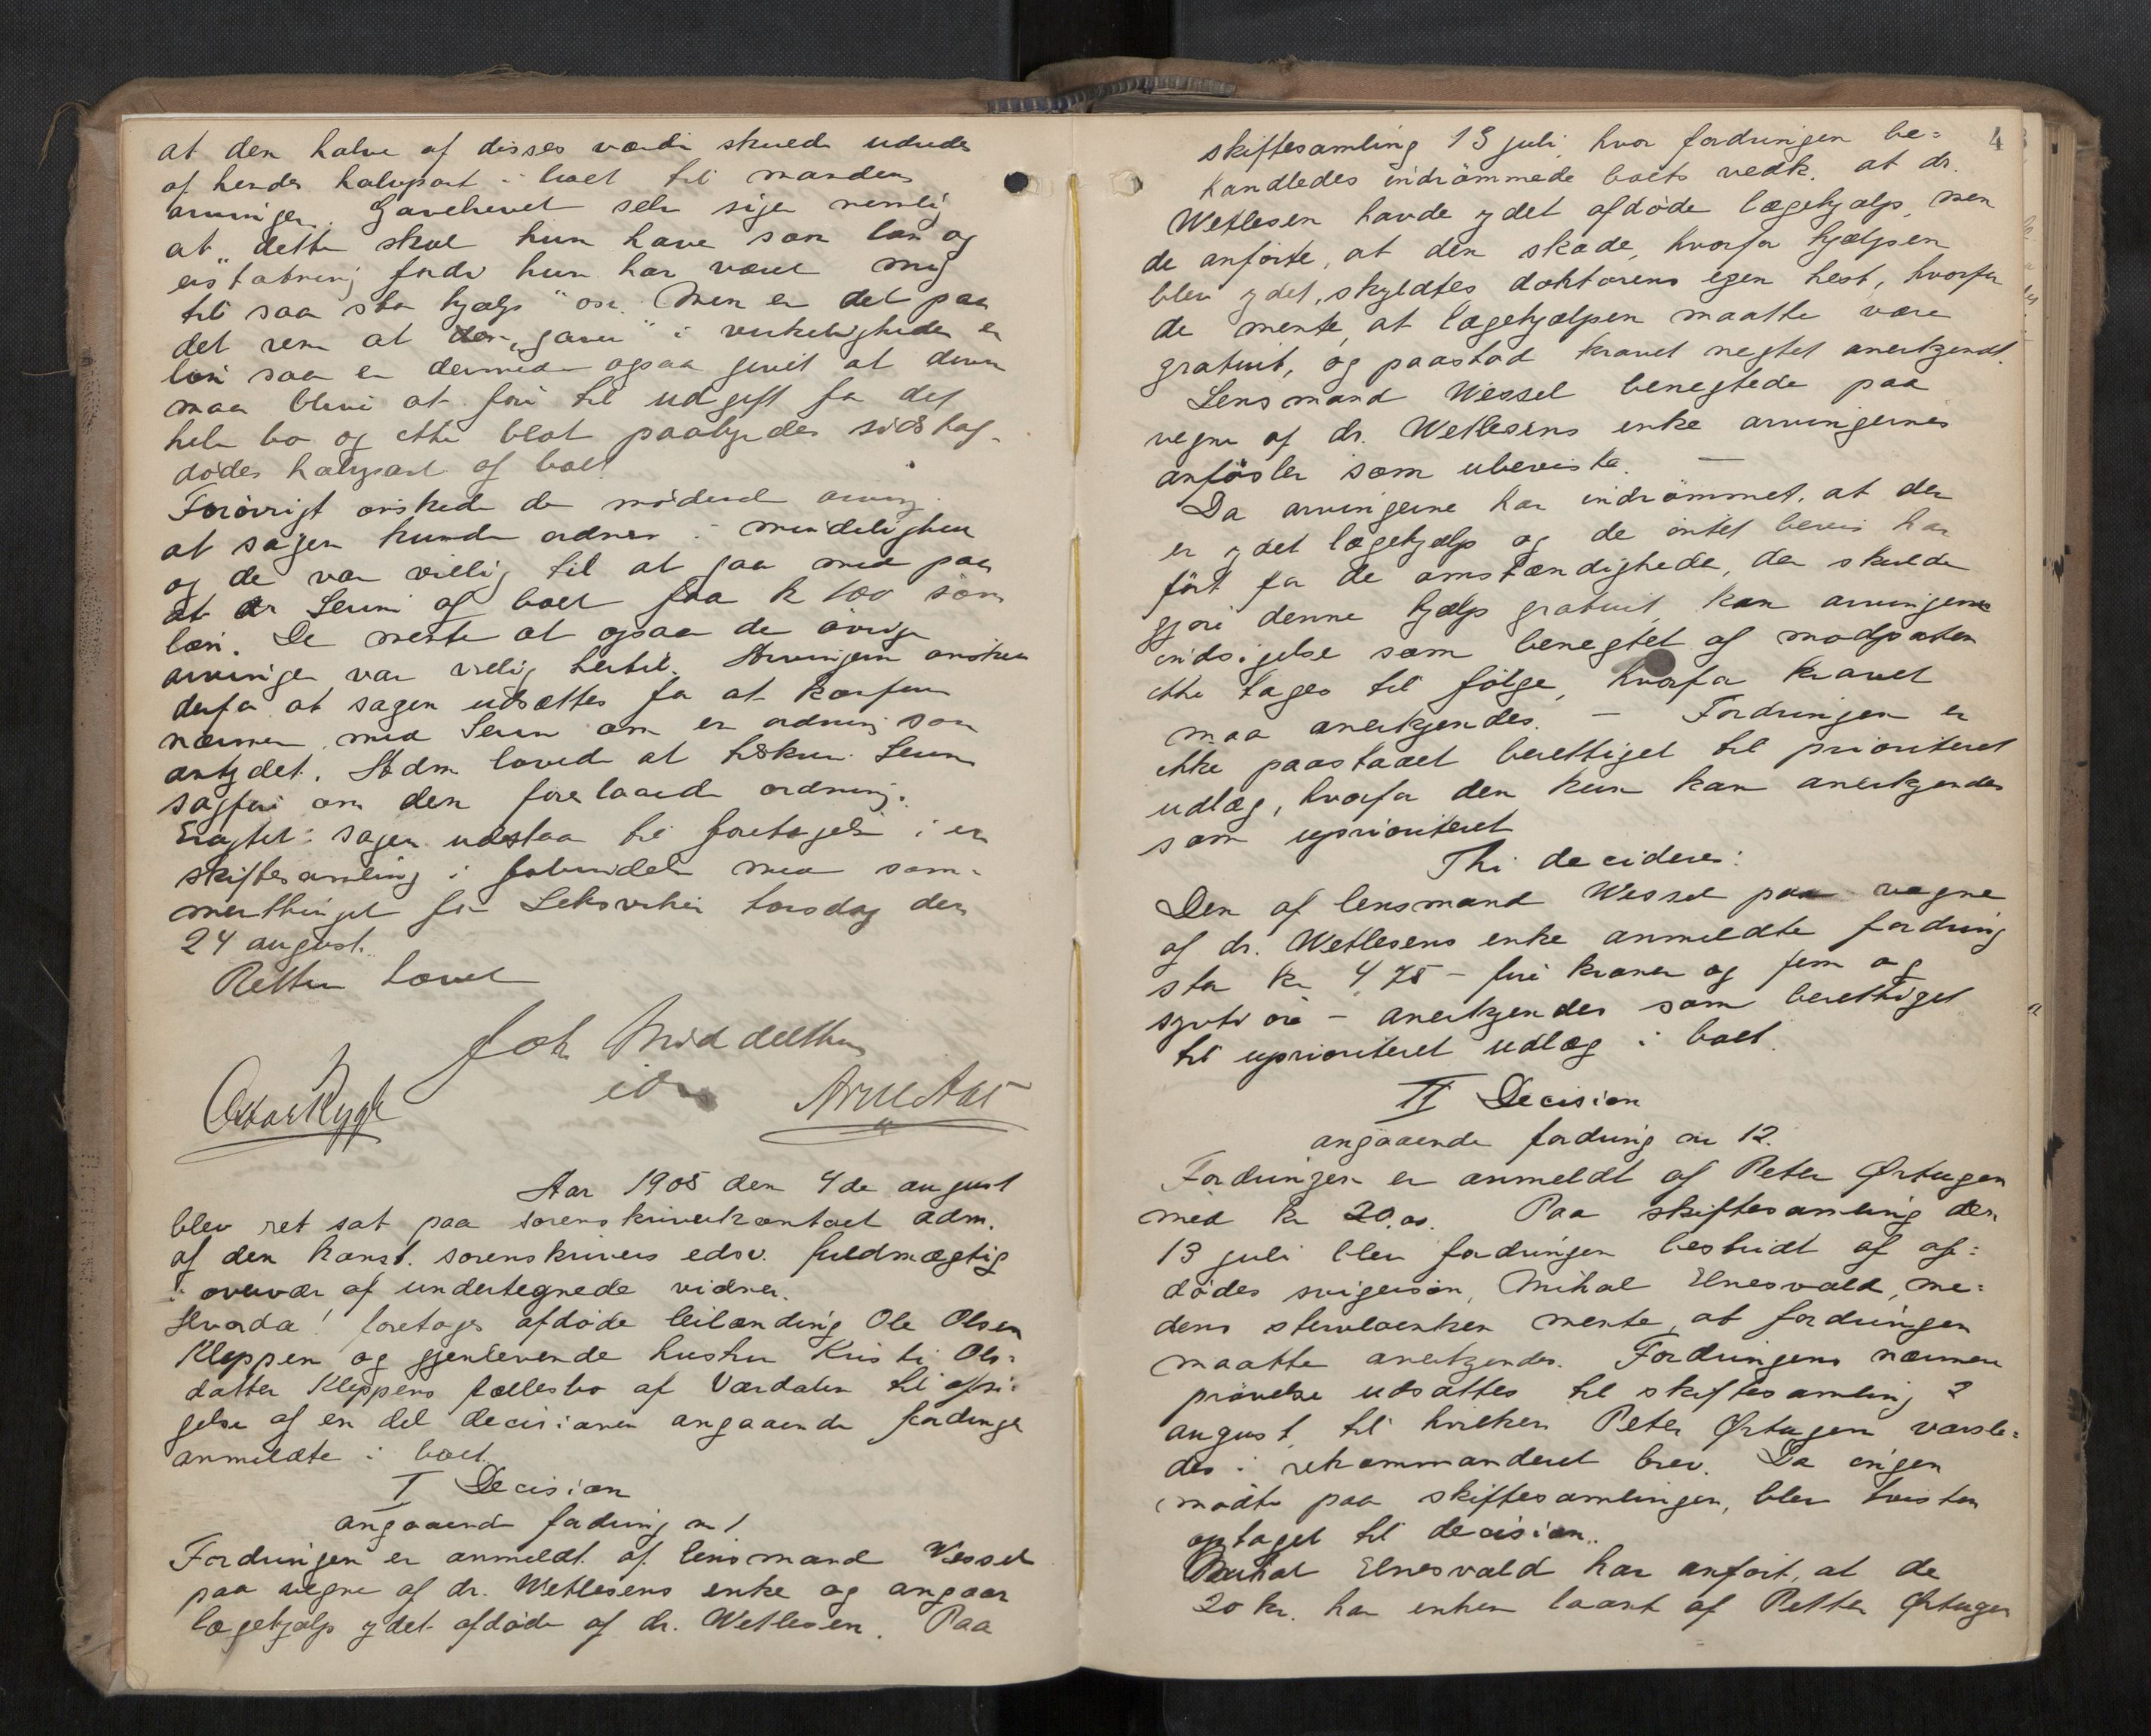 at den halve af disses værdi skulde udredes
af hendes halvpart i boet til mandens
arvinger. Gavebrevet selv siger nemlig
at "dette skal hun have som løn og
erstatning fordi hun har været mig
til saa stor hjælp" osv. Men er det paa
det rene at "gaven" i virkeligheden er
løn saa er dermed ogsaa givet at den
maa blive at føre til udgift for det
hele bo og ikke blot paabyrdes sidstaf-
dødes halvpart af boet.
Forøvrigt ønskede de mødende arving.
at sagen kunde ordnes i mindelighed
og de var villig til at gaa med paa
at Leuni af boet faa kr 100 som
løn. De mente at ogsaa de øvrige
arvinger var villig hertil. Arvingerne ønsker
derfor at sagen udsættes for at konferere
nærmere med om en ordning som
antydet. Adm lovede at tilskrive
sagfører om den foreslaaede ordning.
Eragtet: sagen udstaa til foretagelse i en
skiftesamling i forbindelse med som-
merthinget for Leksviken torsdag den
24 august.
Retten hævet
Joh Middelthon
Oskar Rygh
Aar 1905 den 4de august
blev ret sat paa sorenskriverkontoret adm.
af den konst. sorenskrivers edsv. fuldmægtig
i overvær af undertegnede vidner.
Hvorda! foretages afdøde leilænding Ole Olsen
Kleppen og gjenlevende hustru Kristi Ols-
datter Kleppens fællesbo af Værdalen til afsi-
gelse af en del decisioner angaaende fordringer
anmeldte i boet.
I Decision
angaaende fordring nr 1
Fordringen er anmeldt af lensmand Wessel
paa vegne af dr. Wetlesens enke og angaar
lægehjælp ydet afdøde af dr. Wetlesen. Paa
4
skiftesamling 13 juli, hvor fordringen be=
handledes indrømmede boets vedk. at dr.
Wetlesen havde ydet afdøde lægehjælp, men
de anførte, at den skade, hvorfor hjælpen
blev ydet, skyldtes doktorens egen hest, hvorfor
de mente, at lægehjælpen maatte være
gratuit, og paastod kravet negtet anerkjendt.
Lensmand Wessel benegtede paa
vegne af dr. Wetlesens enke arvingernes
anførsler som ubeviste. —
Da arvingerne har indrømmet, at der
er ydet lægehjælp og de intet bevis har
ført for de omstændigheder, der skulde
gjøre denne hjælp gratuit, kan arvingernes
indsigelse som benegtet af modparten
ikke tages til følge, hvorfor kravet
maa anerkjendes. — Fordringen er
ikke paastaaet berettiget til prioriteret
udlæg, hvorfor den kun kan anerkjendes
som uprioriteret
Thi decideres:
Den af lensmand Wessel paa vegne
af dr. Wetlesens enke anmeldte fordring
stor kr 4,75 – fire kroner og fem og
sytti øre – anerkjendes som berettiget
til uprioriteret udlæg i boet.
II Decision
angaaende fordring nr 12.
Fordringen er anmeldt af Peter Ørtugen
med kr 20.00. Paa skiftesamling den
13 juli blev fordringen bestridt af af=
dødes svigersøn, Mikal Elnesvald, me=
dens sterboenken mente, at fordringen
maatte anerkjendes. Fordringens nærmere
prøvelse udsattes til skiftesamling 2
august, til hvilken Peter Ørtugen varsle=
des i rekommanderet brev. Da ingen
mødte paa skiftesamlingen, blev tvisten
optaget til decision.
Mikal Elnesvald har anført, at de
20 kr. har enken laant af Petter Ørtugen